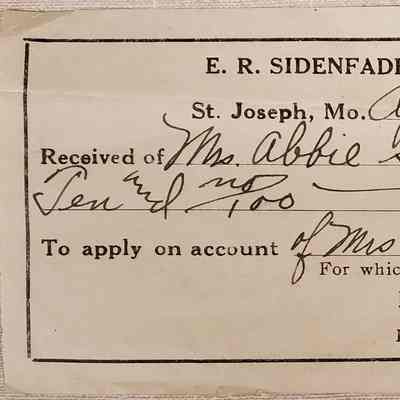 E. R. SIDENFAD
St. Joseph, Mo.
Received of Mrs. Abbie
Ten and no/100
To apply on account of Mrs
For whic